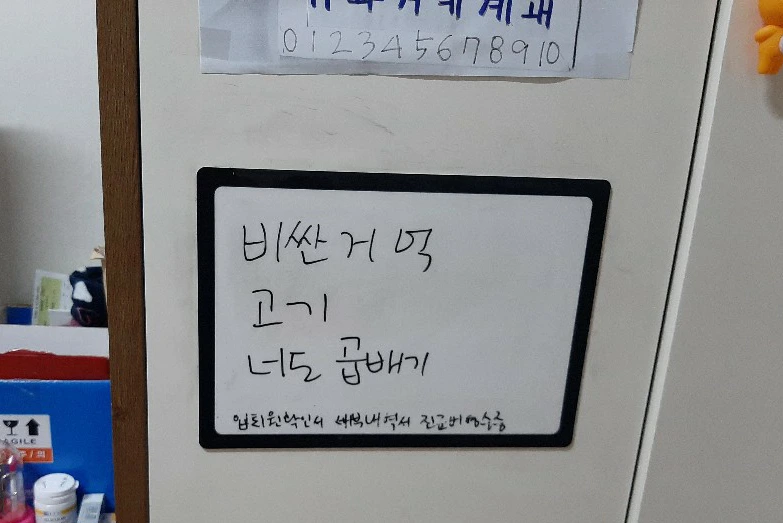 0 1 2 3 4 5 6 7 8 9 10
비싼 거 먹
고기
너도 곱배기
입퇴원확인서 세부내역서 진료비영수증
AGILE